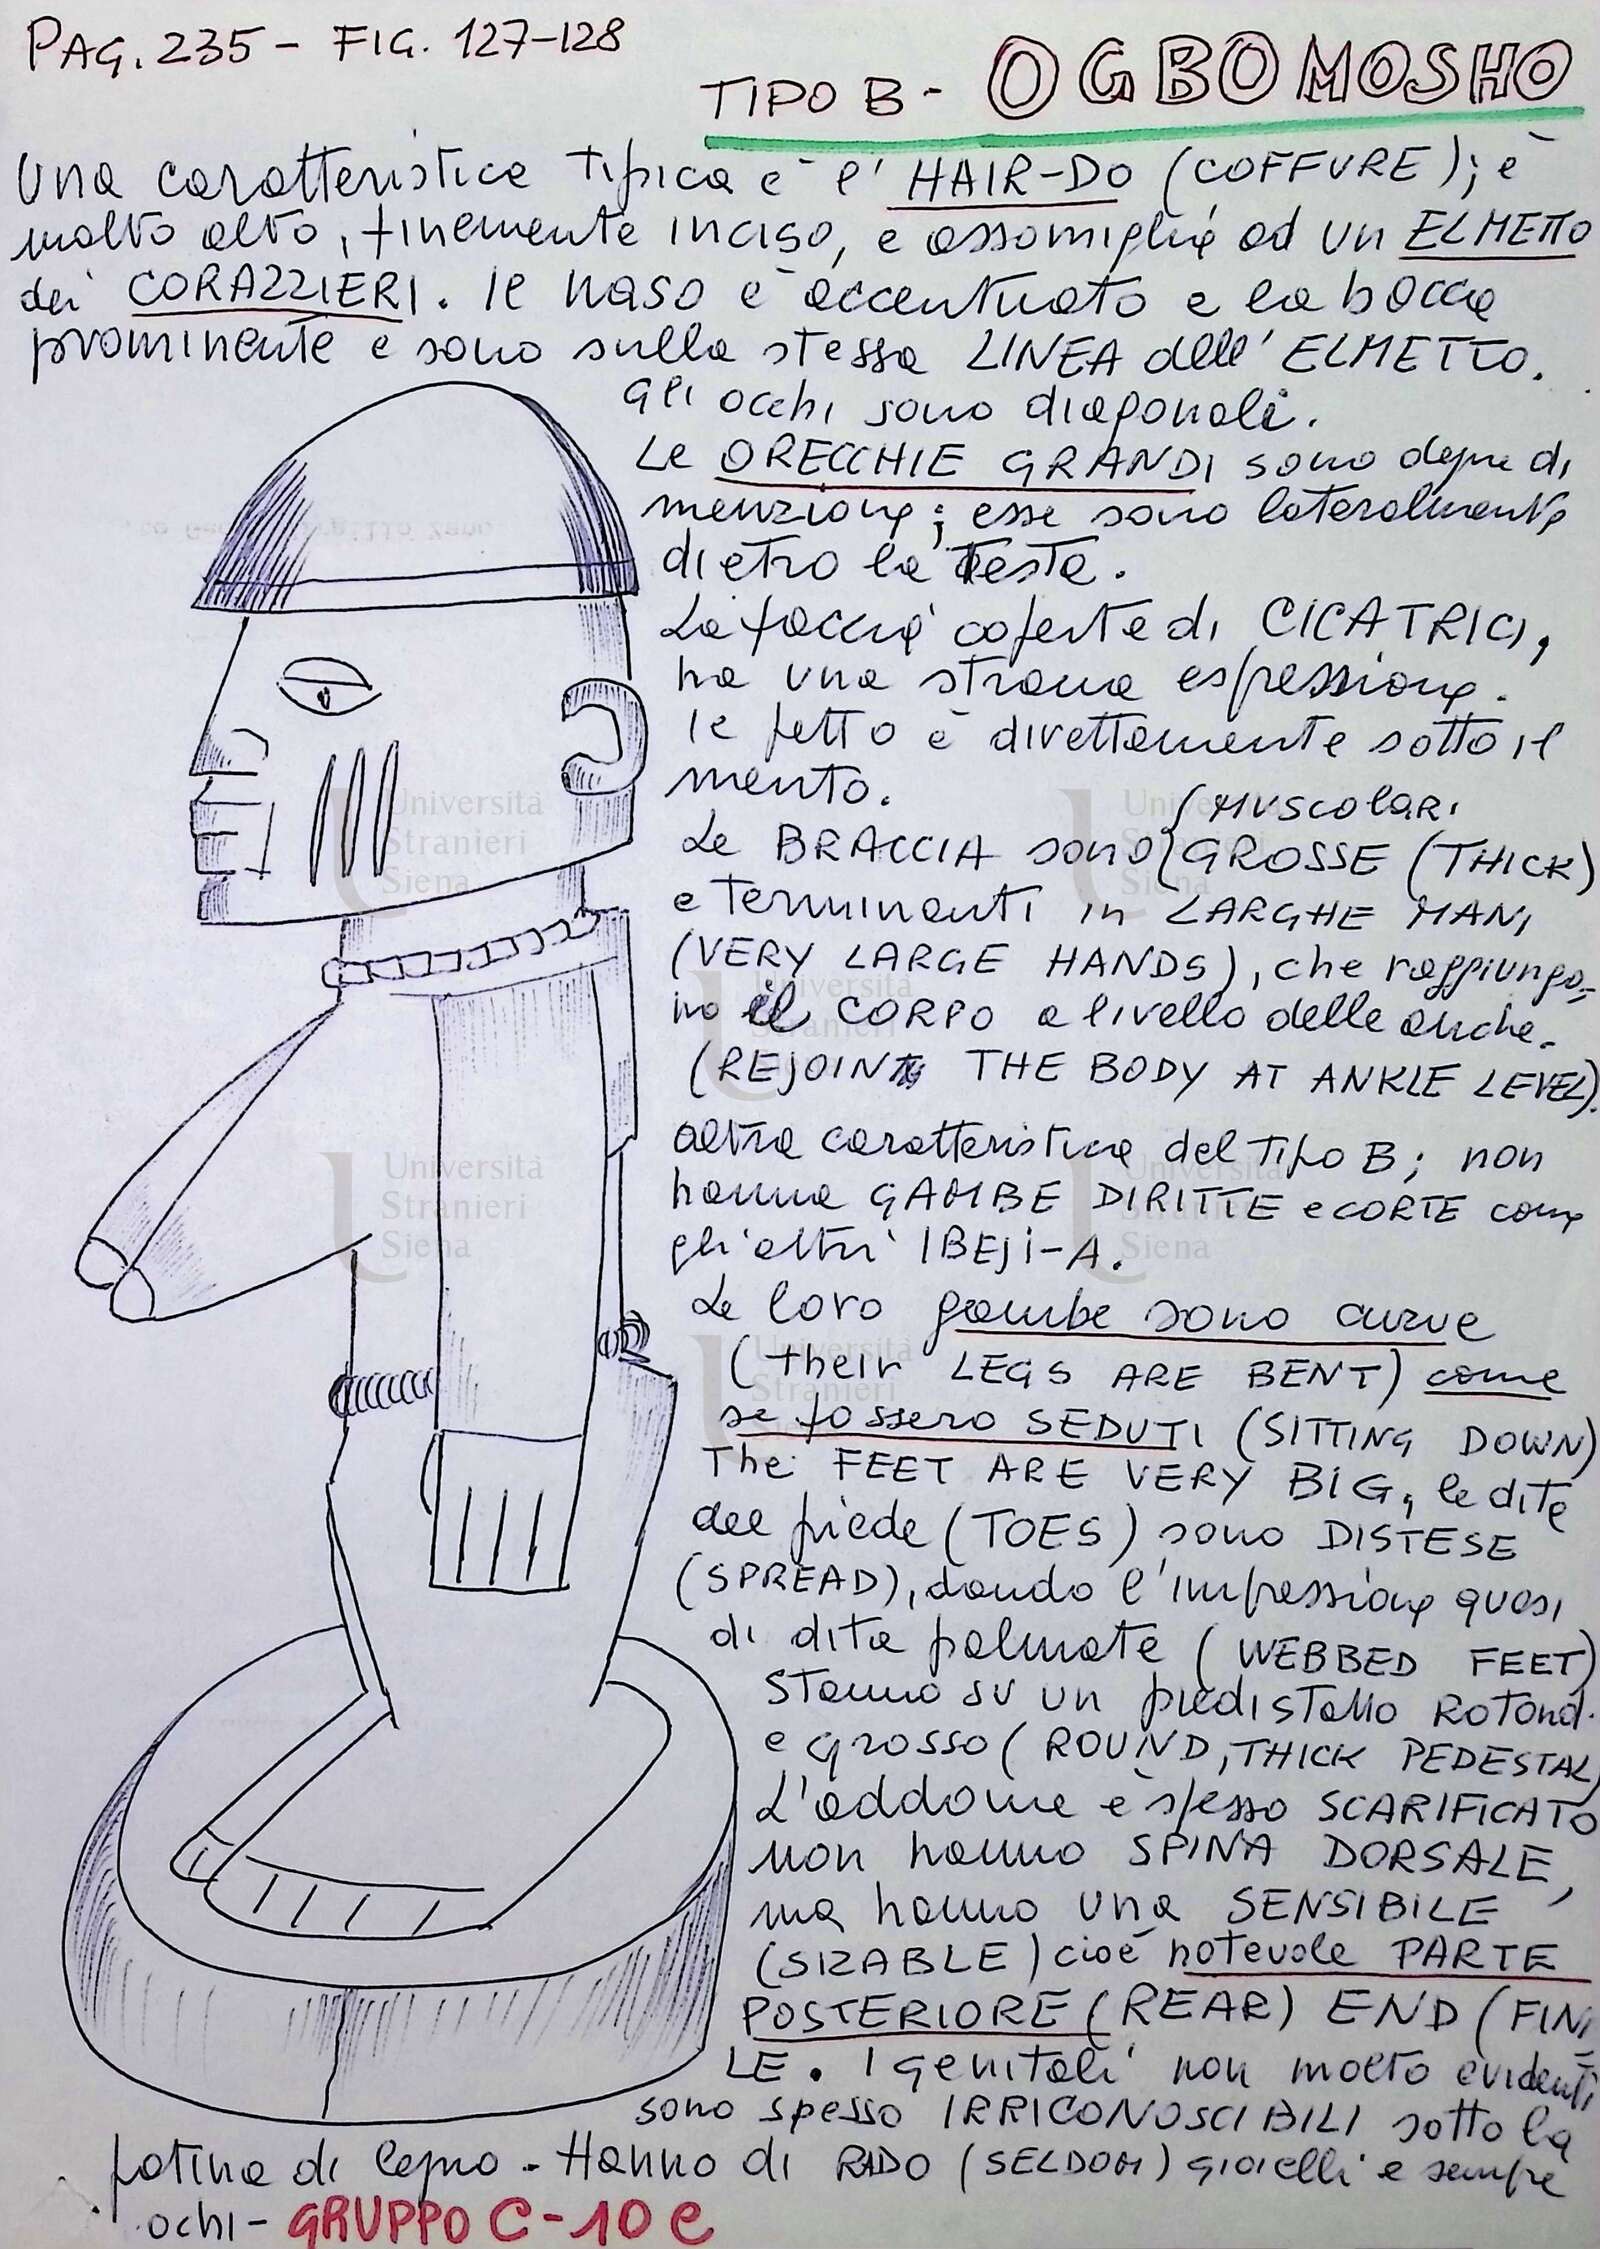 PAG. 235 - FIG. 127-128
TIPO B - OGBOMOSHO
Una caratteristica tipica è l' HAIR-DO (COFFURE); è
molto alto, finemente inciso, e assomiglia ad un ELMETTO
dei CORAZZIERI. Il naso è accentuato e la bocca
prominente e sono sulla stessa LINEA dell' ELMETTO.
Gli occhi sono diagonali.
Le ORECCHIE GRANDI sono degne di
menzione; esse sono lateralmente
dietro la testa.
La faccia coperta di CICATRICI,
ha una strana espressione.
Il petto è direttamente sotto il
mento.
MUSCOLARI
Le BRACCIA sono GROSSE (THICK)
e terminanti in LARGHE MANI
(VERY LARGE HANDS), che raggiungo=
no il CORPO a livello delle anche.
(REJOIN THE BODY AT ANKLE LEVEL).
altra caratteristica del Tipo B; non
hanno GAMBE DIRITTE e CORTE come
gli altri IBEJI-A.
Le loro gambe sono curve
(their LEGS ARE BENT) come
se fossero SEDUTI (SITTING DOWN)
The FEET ARE VERY BIG, le dita
del piede (TOES) sono DISTESE
(SPREAD), dando l'impressione quasi
di dita palmate (WEBBED FEET)
Stanno su un piedistallo ROTOND.
e grosso (ROUND, THICK PEDESTAL)
L'addome è spesso SCARIFICATO
non hanno SPINA DORSALE,
ma hanno una SENSIBILE
(SIZABLE) cioè notevole PARTE
POSTERIORE (REAR) END (FINA
LE. I genitali non molto evidenti
sono spesso IRRICONOSCIBILI sotto la
patina di legno - Hanno di RADO (SELDOM) gioielli e sempre
ochi - GRUPPO C-10 e
Università
Stranieri
Siena
Università
Stranieri
Siena
Università
Stranieri
Siena
Università
Stranieri
Siena
Università
Stranieri
Siena
Università
Stranieri
Siena